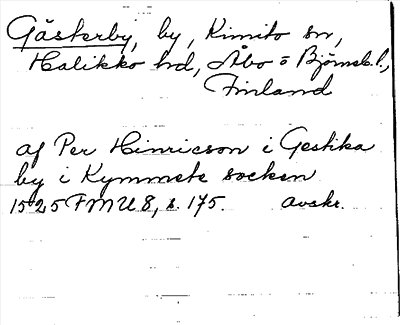 Gästerby, by, Kimito sn,
Halikko hd, Åbo o Björneb. l.,
Finland
af Per Hinricson i Gestika
by i Kymmete socken
1525 FMU 8, s. 175. avskr.